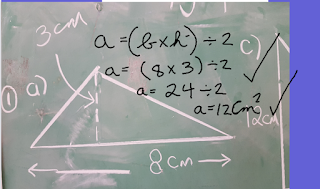 3cm
a = (b x h) ÷ 2
a = (8 x 3) ÷ 2
a = 24 ÷ 2
a = 12 cm²
① a)
c)
12cm
8cm